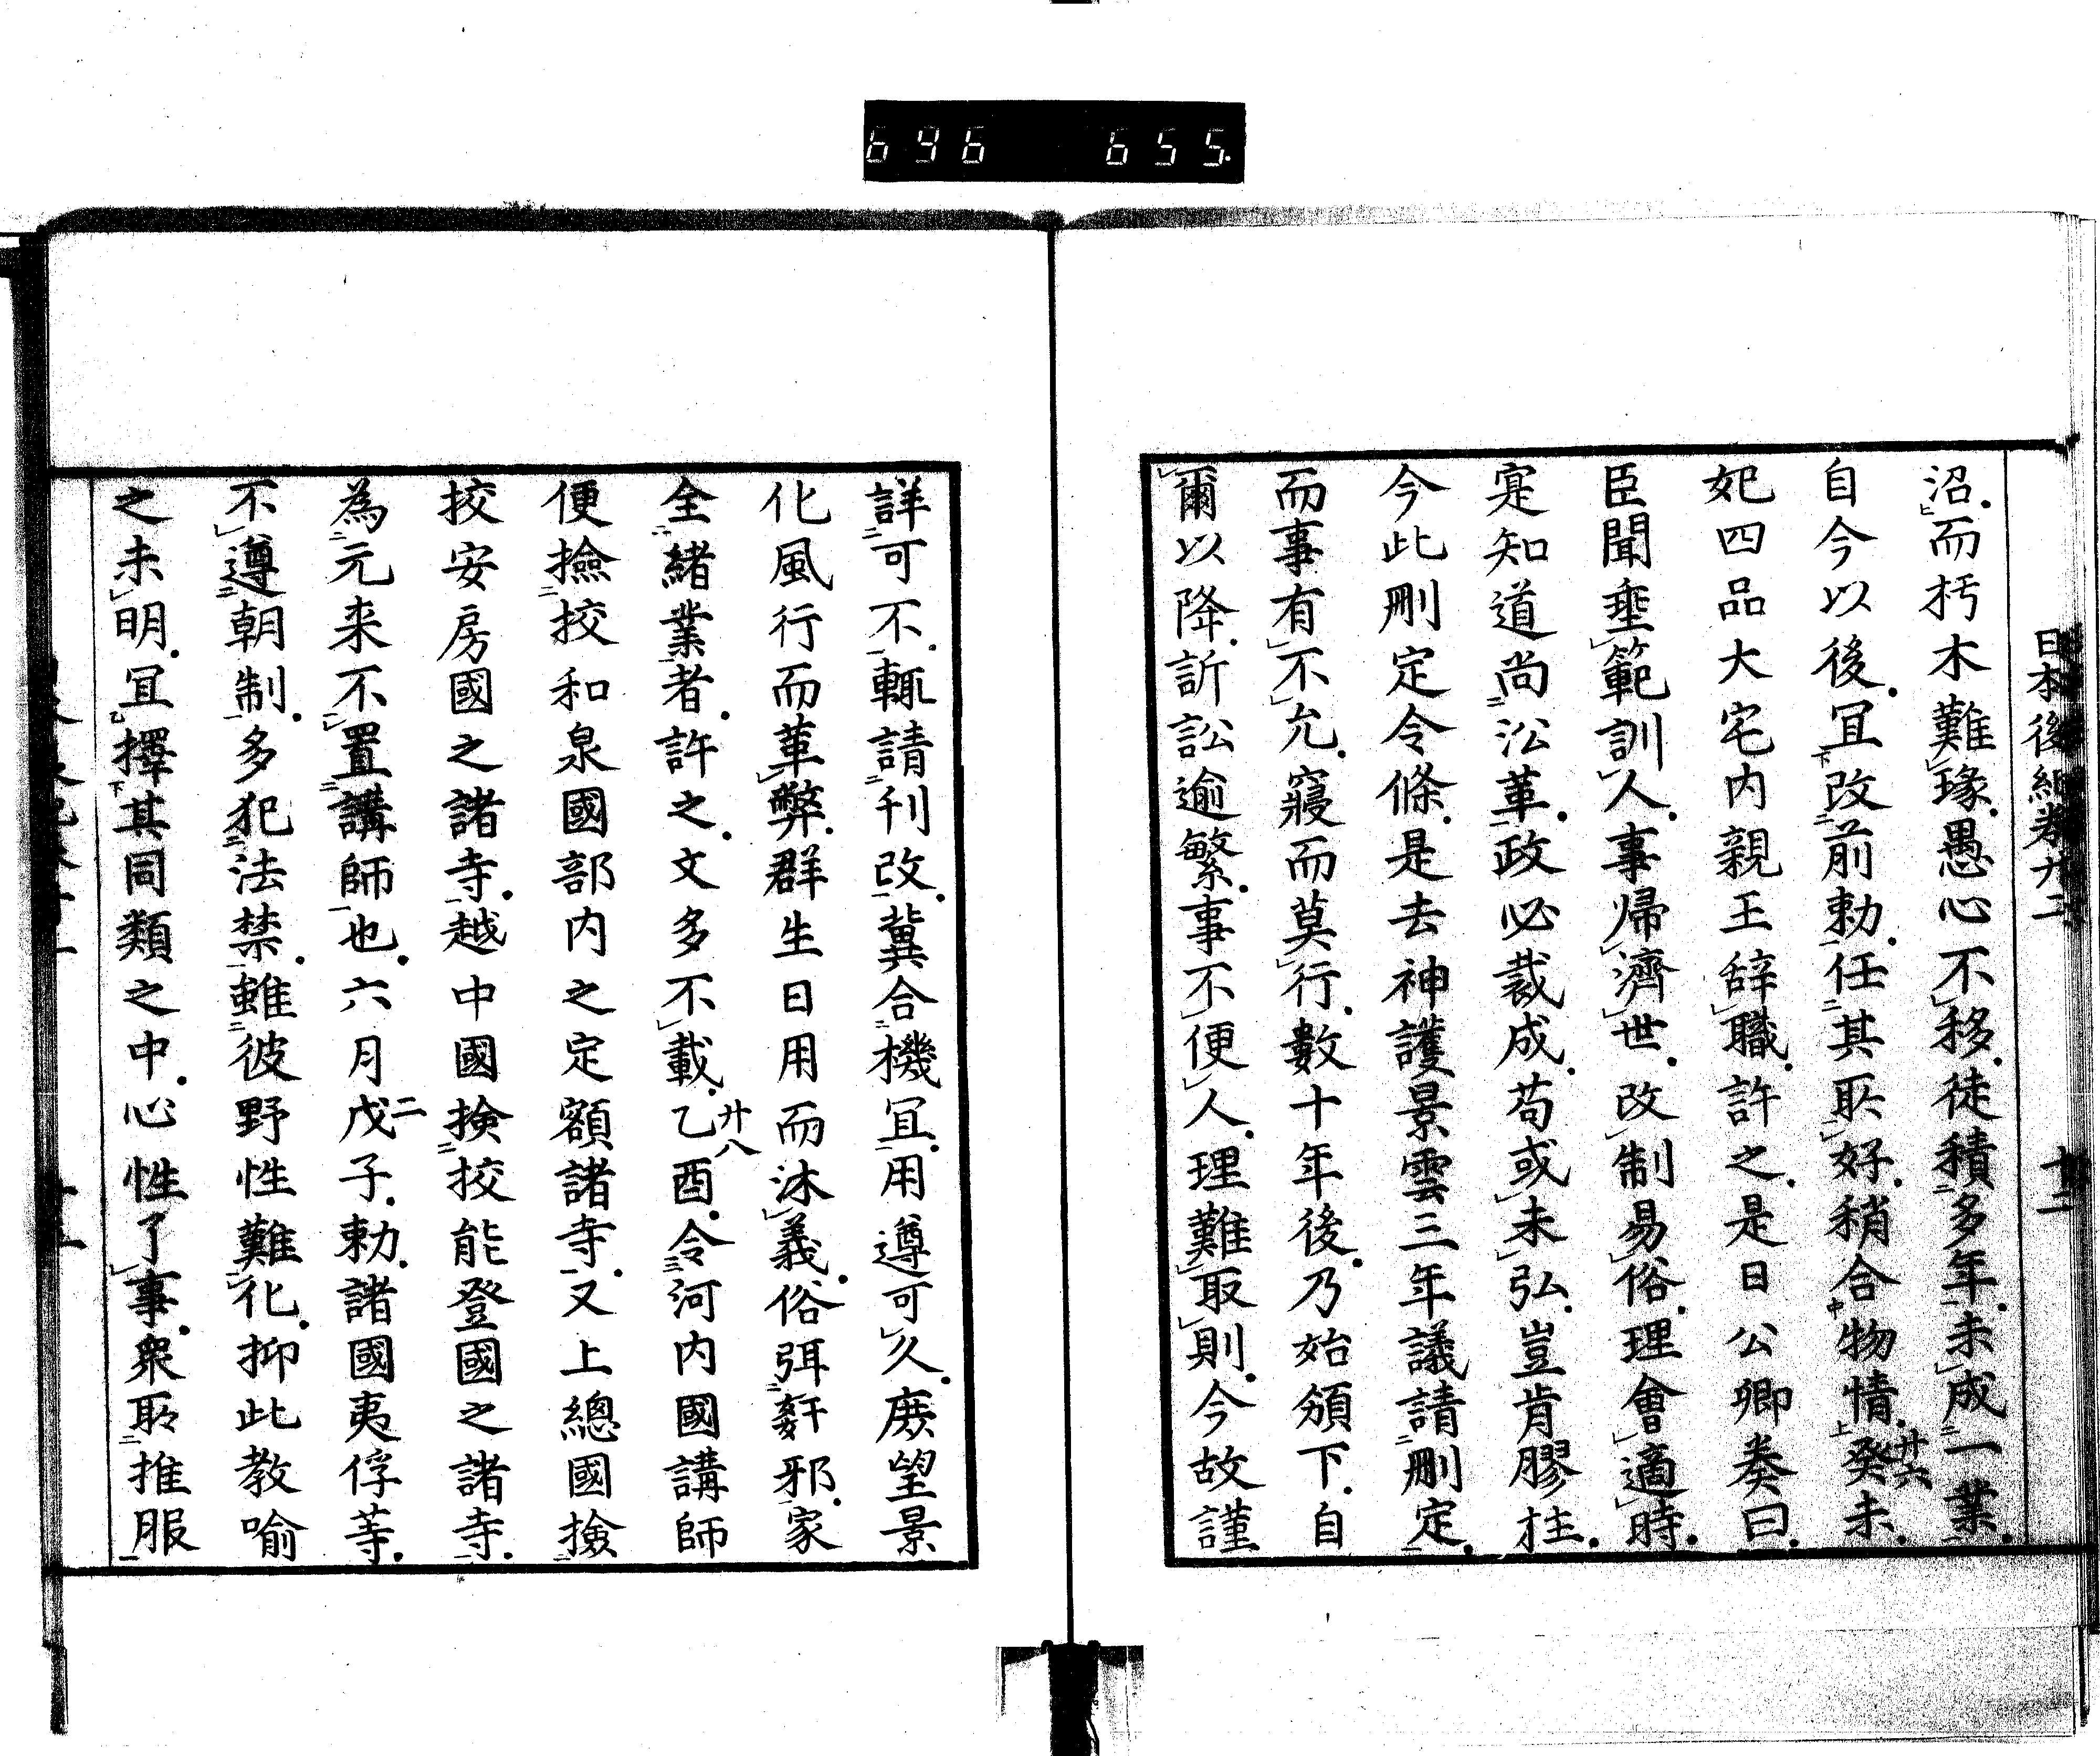 696 655
日本後紀卷廿二 十二
沼。而朽木難琢。愚心不移。徒積多年。未成一業。
自今以後。冝改前勅。任其所好。稍合物情。廿六癸未。
妃四品大宅内親王辞職。許之。是日公卿奏曰。
臣聞垂範訓人。事帰濟世。改制易俗。理會適時。
寔知道尚沿革。政必裁成。苟或未弘。豈肯膠柱。
今此刪定令條。是去神護景雲三年議請刪定。
而事有不允。寢而莫行。數十年後。乃始頒下。自
爾以降。訴訟逾繁。事不便人。理難取則。今故謹
詳可不。輙請刊改。冀合機冝。用遵可久。庶望景
化風行而革弊。群生日用而沐義。俗弭姧邪。家
全緒業者。許之。文多不載。廿八乙酉。令河内國講師
便撿挍和泉國部内之定額諸寺。又上總國撿
挍安房國之諸寺。越中國撿挍能登國之諸寺。
為元来不置講師也。六月二戊子。勅。諸國夷俘等。
不遵朝制。多犯法禁。雖彼野性難化。抑此教喻
之未明。冝擇其同類之中。心性了事。衆所推服